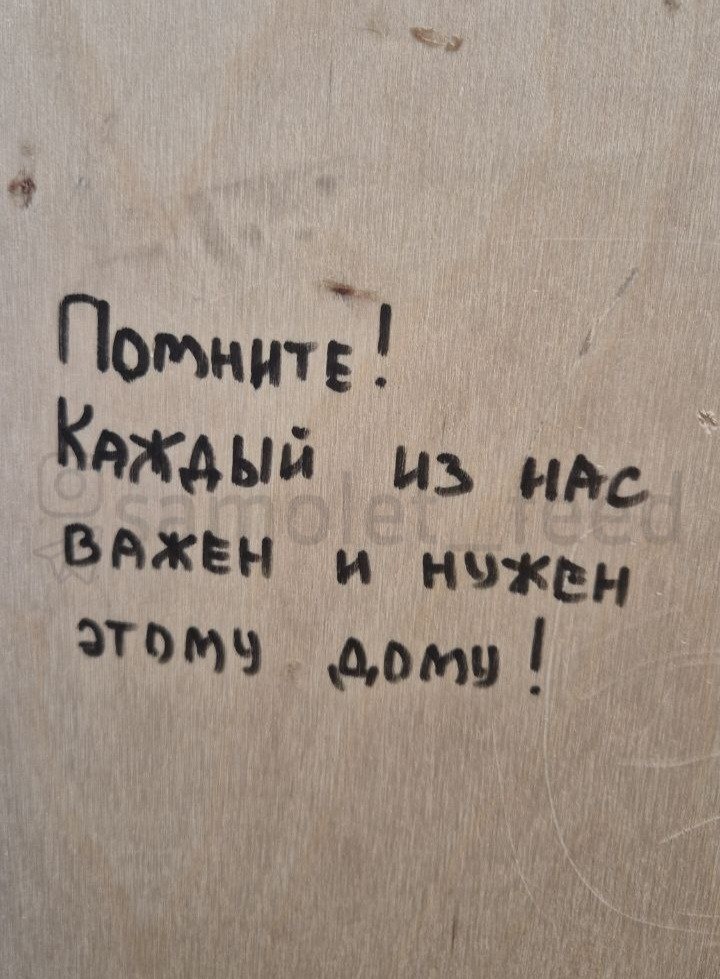 Помните!
Каждый из нас
@samolet_feed
важен и нужен
этому дому!